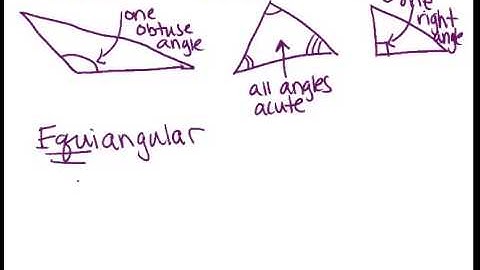 one
obtuse
angle
all angles
acute
one
right
angle
Equiangular